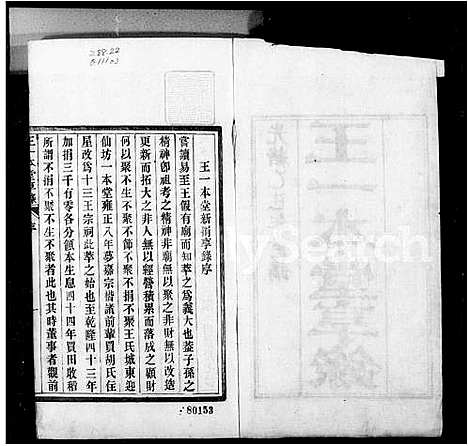 288.22
王一本堂新捐享錄序
嘗讀易至王假有廟而知萃之為義大也蓋子孫之
精神即祖考之精神非廟無以聚之非財無以改造
更新而拓大之非人無以經營積累而落成之顧財
何以聚不生不聚不節不聚不捐不聚王氏城東迎
仙坊一本堂雍正八年夢嘉宗偕諸前輩買胡氏住
屋改為十三王宗祠此萃之始也至乾隆四十三年
加捐三千有零各分飲本生息四十四年買田收稻
所謂不捐不生不聚者此也其時董事者觀前
王一本堂享錄
序
80153
MySearch